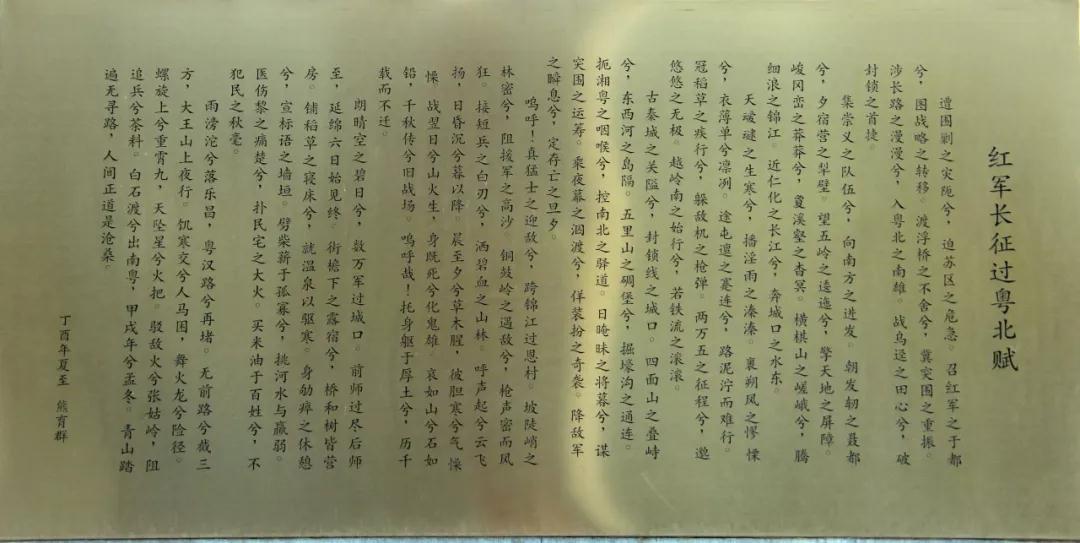 红军长征过粤北赋
遭围剿之灾阨兮，迫苏区之危急。召红军之于都
兮，图战略之转移。渡浮桥之不舍兮，冀突围之重振。
涉长路之漫漫兮，入粤北之南雄。战乌迳之田心兮，破
封锁之首捷。
集崇义之队伍兮，向南方之进发。朝发轫之聂都
兮，夕宿营之犁壁。望五岭之逶迤兮，擎天地之屏障。
峻冈峦之莽莽兮，敻溪壑之杳冥。横棋山之嵯峨兮，腾
细浪之锦江。近仁化之长江兮，奔城口之水东。
天叆叇之生寒兮，播淫雨之溱溱。裹朔风之憀慄
兮，衣薄单兮凛冽。途屯邅之蹇连兮，路泥泞而难行。
冠稻草之疾行兮，躲敌机之枪弹。两万五之征程兮，邈
悠悠之无极。越岭南之始行兮，若铁流之滚滚。
古秦城之关隘兮，封锁线之城口。四面山之叠峙
兮，东西河之岛隔。五里山之碉堡兮，掘壕沟之通连。
扼湘粤之咽喉兮，控南北之驿道。日晻昧之将暮兮，谋
突围之运筹。乘夜幕之泅渡兮，佯装扮之奇袭。降敌军
之瞬息兮，定存亡之旦夕。
呜呼！真猛士之迎敌兮，跨锦江过恩村。坡陡峭之
林密兮，阻援军之高沙。铜鼓岭之遇敌兮，枪声密而风
狂。接短兵之白刃兮，洒碧血之山林。呼声起兮云飞
扬，日昏沉兮暮以降。晨至夕兮草木腥，彼胆寒兮气懆
懆。战翌日兮山火生，身既死兮化鬼雄。哀如山兮石如
铅，千秋传兮旧战场。呜呼哉！托身躯于厚土兮，历千
载而不迁。
朗晴空之碧日兮，数万军过城口。前师过尽后师
至，延绵六日始见终。街檐下之露宿兮，桥和树皆营
房。铺稻草之寝床兮，就温泉以驱寒。身劬瘁之休憩
兮，宣标语之墙垣。劈柴薪于孤寡兮，挑河水与羸弱。
医伤黎之痛楚兮，扑民宅之大火。买米油于百姓兮，不
犯民之秋毫。
雨滂沱兮落乐昌，粤汉路兮再堵。无前路兮截三
方，大王山上兮夜行。饥寒交兮人马困，舞火龙兮险径。
螺旋上兮重霄九，天坠星兮火把。驳敌火兮张姑岭，阻
追兵兮茶料。白石渡兮出南粤，甲戌年兮孟冬。青山踏
遍无寻路，人间正道是沧桑。
丁酉年夏至 熊育群